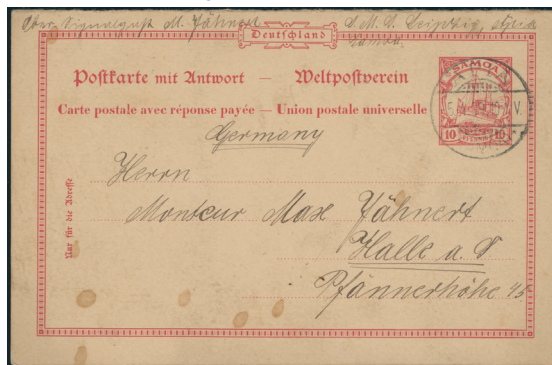 Ober-Signalgast M. Jähnert S.M.S. Leipzig,
Samoa.
Deutschland
Postkarte mit Antwort — Weltpostverein
Carte postale avec réponse payée — Union postale universelle
SAMOA
10 10
Germany
Herrn
Monteur Max Jähnert
Halle a. S
Pfännerhöhe 45
Nur für die Adresse